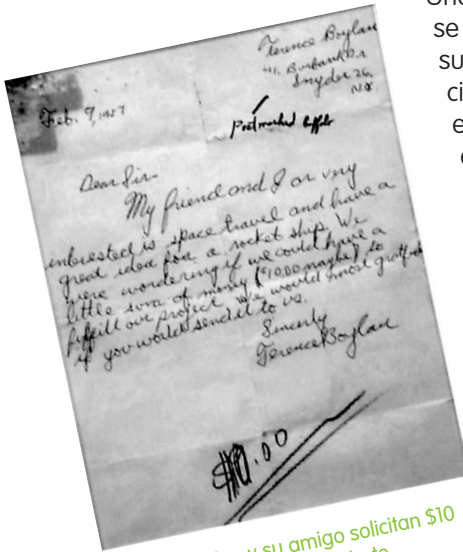 Terence Boylan
41. Burbank Dr.
Snyder 26,
N.Y.
Feb. 9, 1957
Postmarked Buffalo
Dear Sir
My friend and I ar very
interested is space travel and have a
great idea for a rocket ship. We
were wondering if we could have a
little sum of money ($10.00 maybe) to
fulfill our project. We would most
if you would send it to us.
Sincerly
Terence Boylan
$10.00
se
su
ci
e
y su amigo solicitan $10